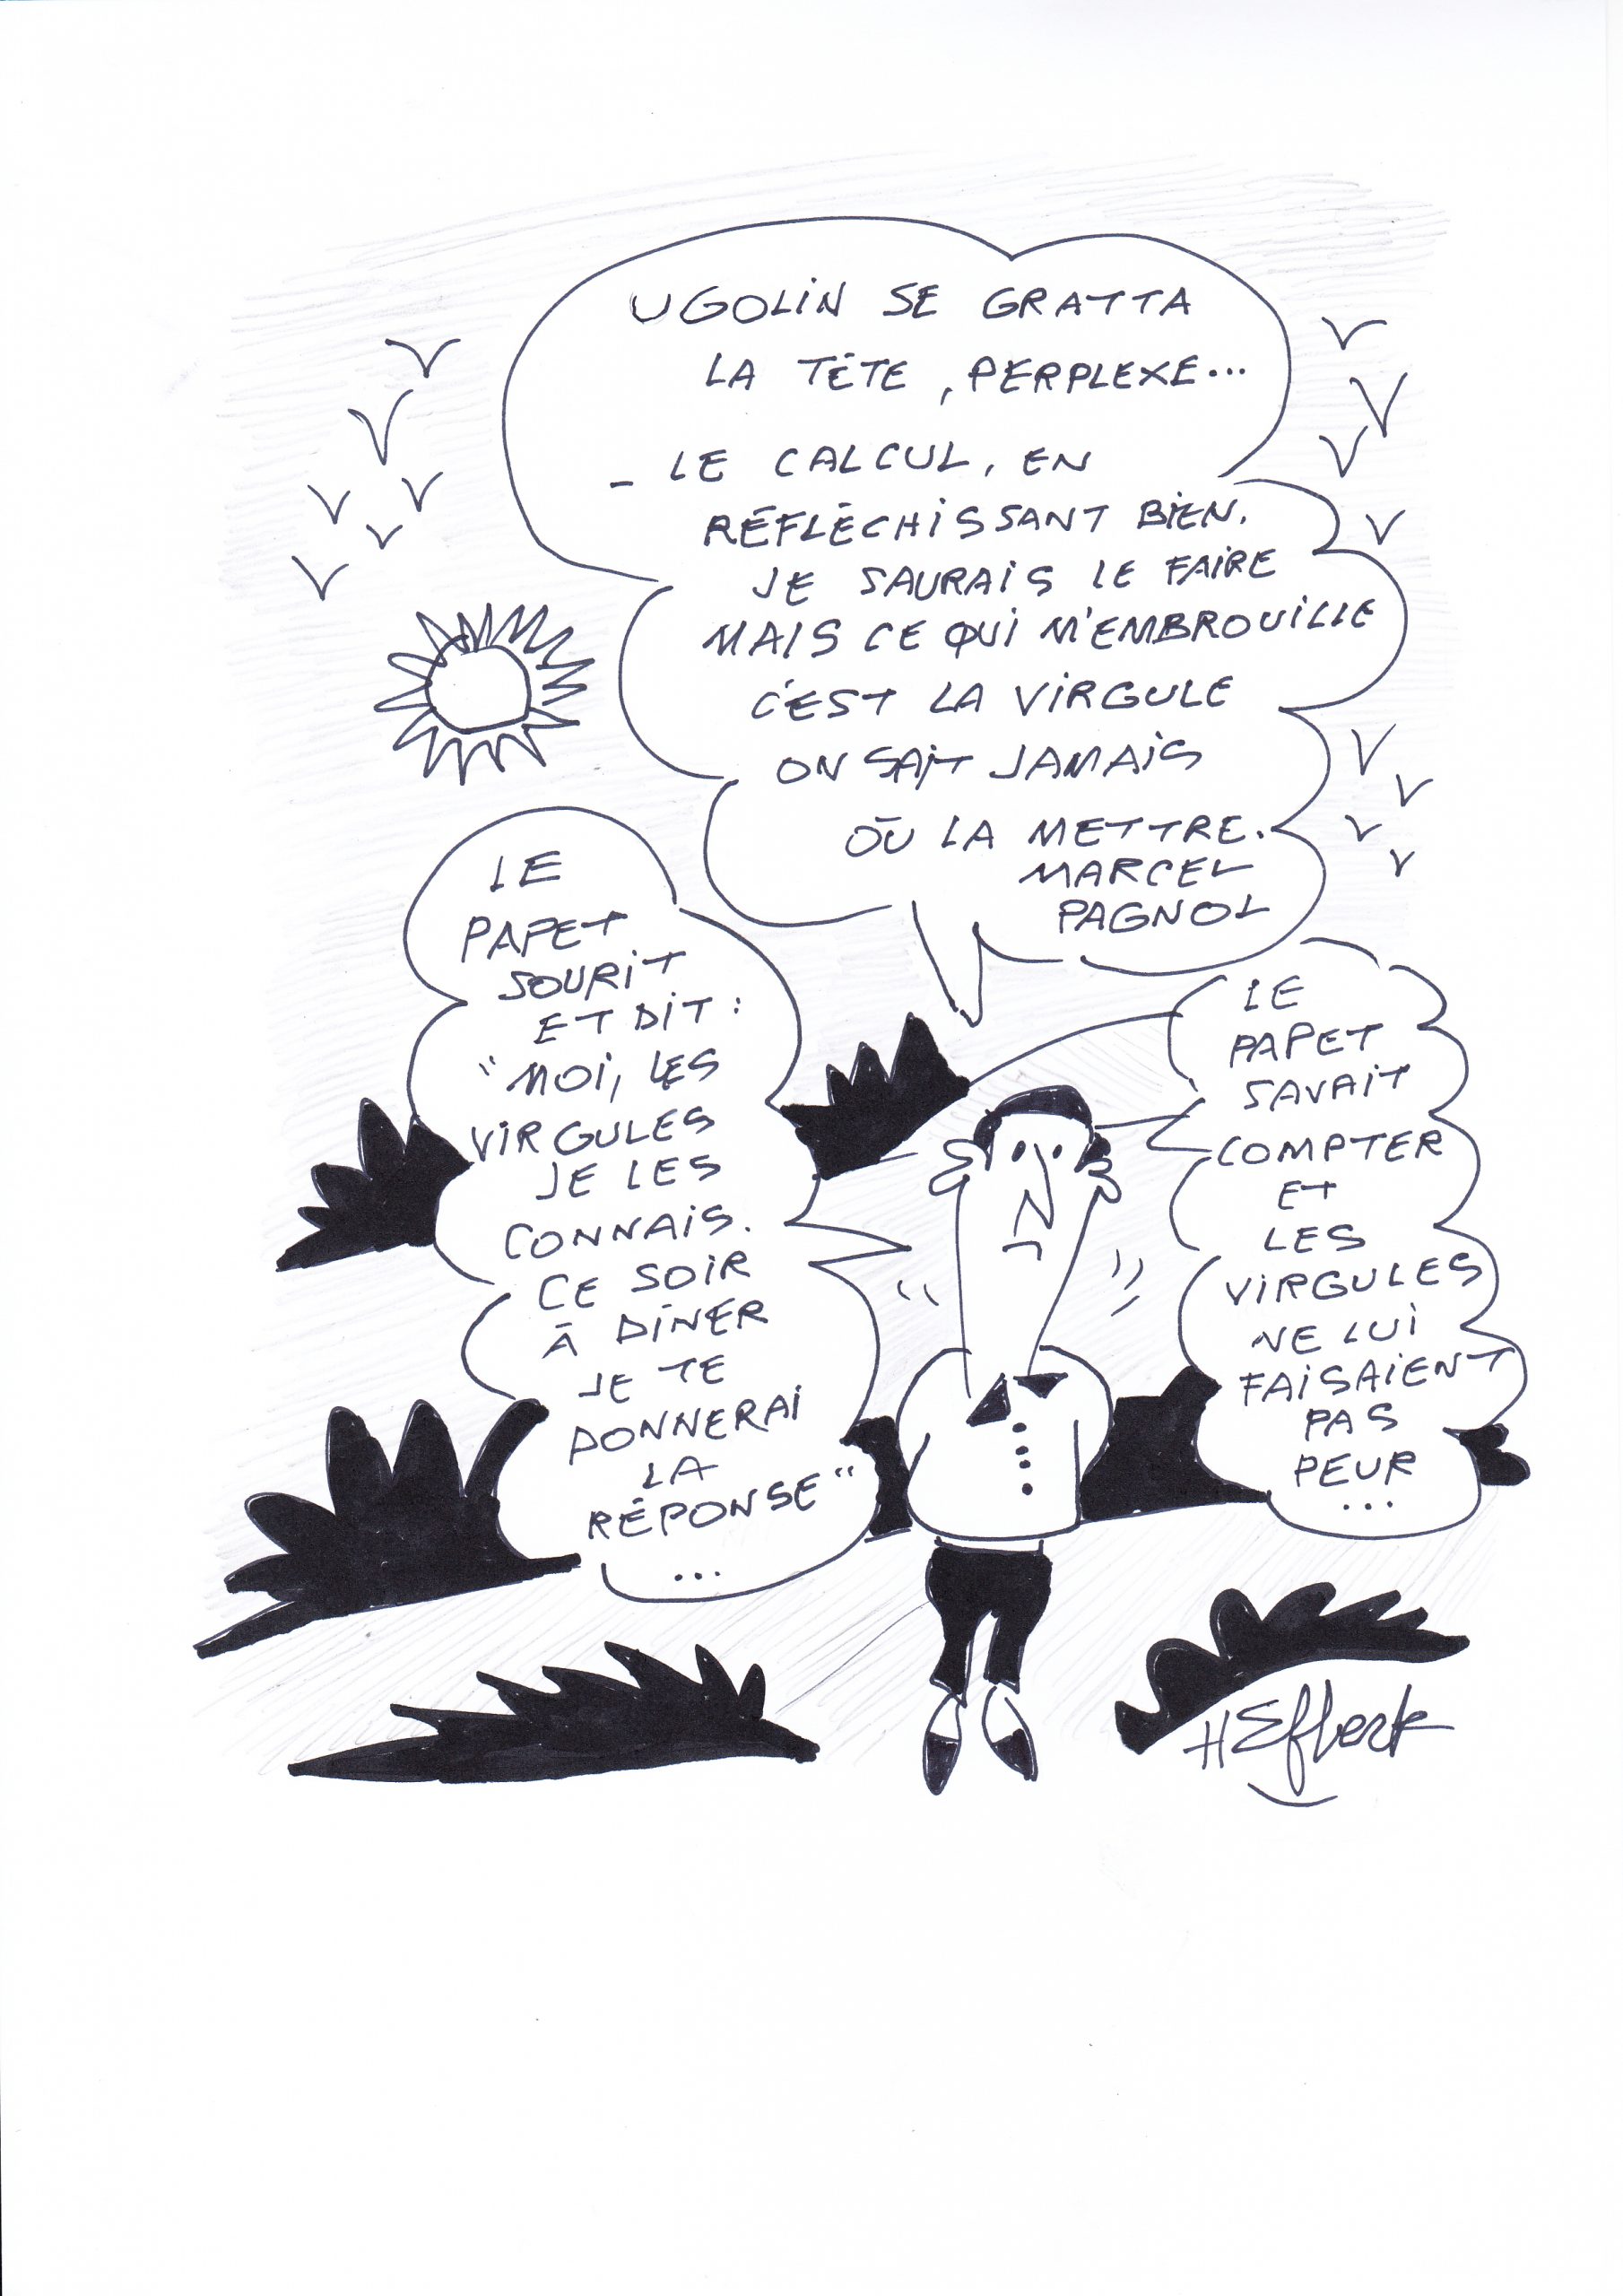 UGOLIN SE GRATTA
LA TÊTE, PERPLEXE...
_ LE CALCUL, EN
RÉFLÉCHISSANT BIEN.
JE SAURAIS LE FAIRE
MAIS CE QUI M'EMBROUILLE
C'EST LA VIRGULE
ON SAIT JAMAIS
OÙ LA METTRE.
MARCEL
PAGNOL
LE
PAPET
SOURIT
ET DIT :
"MOI, LES
VIRGULES
JE LES
CONNAIS.
CE SOIR
À DÎNER
JE TE
DONNERAI
LA
RÉPONSE"
...
LE
PAPET
SAVAIT
COMPTER
ET
LES
VIRGULES
NE LUI
FAISAIENT
PAS
PEUR
...